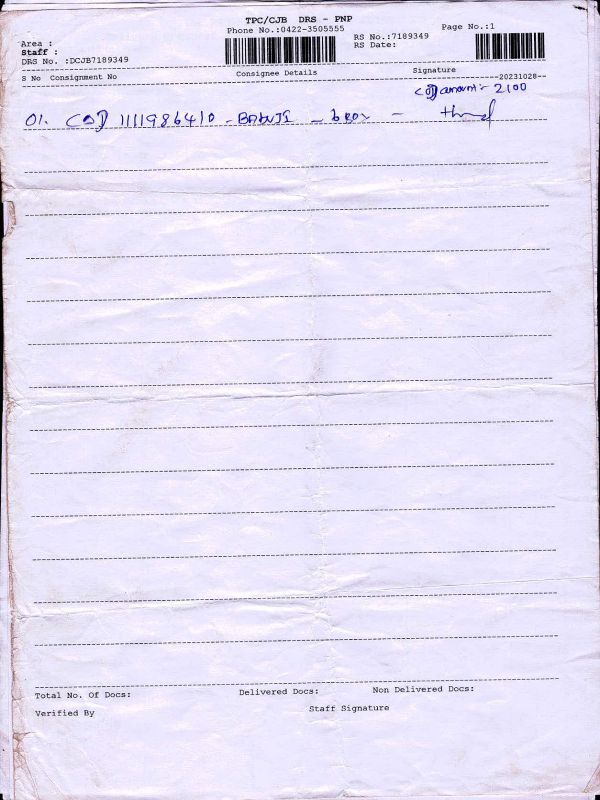 TPC/CJB DRS - PNP
Phone No.:0422-3505555
Page No.:1
RS No.:7189349
RS Date:
Area :
Staff :
DRS No. :DCJB7189349
S No Consignment No Consignee Details Signature
20231028
COD amount:- 2100
01. COD 1111986410 - BABUJI - -
Total No. Of Docs: Delivered Docs: Non Delivered Docs:
Verified By Staff Signature